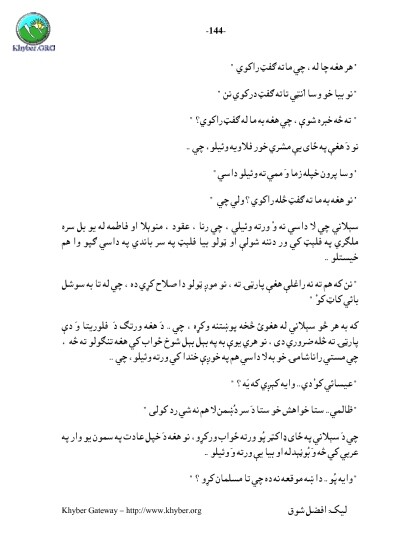 -144-
Khyber.ORG
"هر هغه چا له ، چي ما ته گفټ راکوي "
"نو بيا خو وسا انټي تا ته گفټ درکوي نن "
" ته څه خبره شوې ، چي هغه به ما له گفټ راکوي؟ "
نو دَ هغې په ځاى يې مشرې خور فلاويه وئيلو ، چي ..
"وسا پرون خپله زما وَ ممي ته وئيلو داسي "
"نو هغه به ما ته گفټ څله راکوي؟ ولي چي "
سبلاني چي لا داسي نه وُ ورته وئيلي ، چي رنا ، عقود ، منوبلا او فاطمه له يو بل سره
ملگري په فلېټ کي ور دننه شولې او ټولو بيا فلېټ په سر باندي په داسي گپو وا هم
خيستلو ..
"نن که هم ته نه راغلې هغې پارټۍ ته ، نو موږ ټولو دا صلاح کړې ده ، چي له تا به سوشل
بائي کاټ کوُ "
که به هر څو سبلاني له هغوئ څخه پوښتنه وکړه ، چي .. دَ هغه ورنگ دَ فلوريتا وَ دې
پارټۍ ته څله ضروري دى ، نو هرې يوې به په ببل ببل شوخ ځواب کي هغه تنگولو ته څه ،
چي مستي را ناشامى. خو به لا داسي هم په خوږې خندا کي ورته وئيلو ، چي ..
"عيسائي کوُ دې.. وايه کېږې که يَه ؟ "
"ظالمې.. ستا خواهش خو ستا دَ سر دُښمن لا هم نه شي رد کولى "
چي دَ سبلاني په ځاى ډاکټر پُو ورته ځواب ورکړو ، نو هغه دَ خپل عادت په سمون يو وار په
عربي کي څه وَ پُونېدله او بيا يې ورته وَ وئيلو ..
"وايه پُو .. دا ښه موقعه نه ده چي تا مسلمان کړو ؟ "
Khyber Gateway – http://www.khyber.org
ليک: افضل شوق